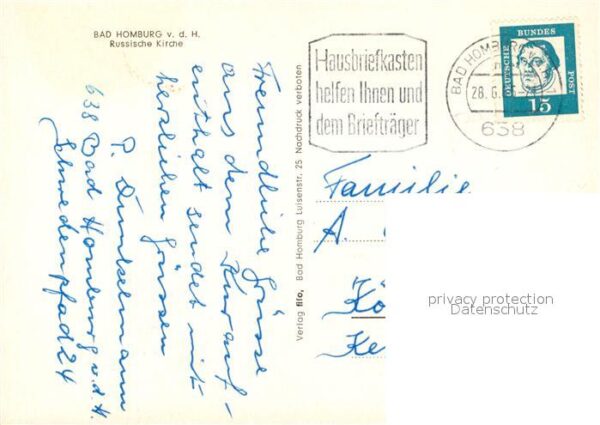 BAD HOMBURG v. d. H.
Russische Kirche
Freundliche Grüsse
aus dem Kurauf-
enthalt sendet mit
herzlichen Grüssen
P. Dunkelmann
638 Bad Homburg v. d. H.
Schwedenpfad 24
Verlag filo, Bad Homburg Luisenstr. 25 Nachdruck verboten
Hausbriefkasten
helfen Ihnen und
dem Briefträger
BAD HOMBURG
28.6.
638
DEUTSCHE BUNDES POST
15
Familie
A.
Kö
Ke
privacy protection
Datenschutz